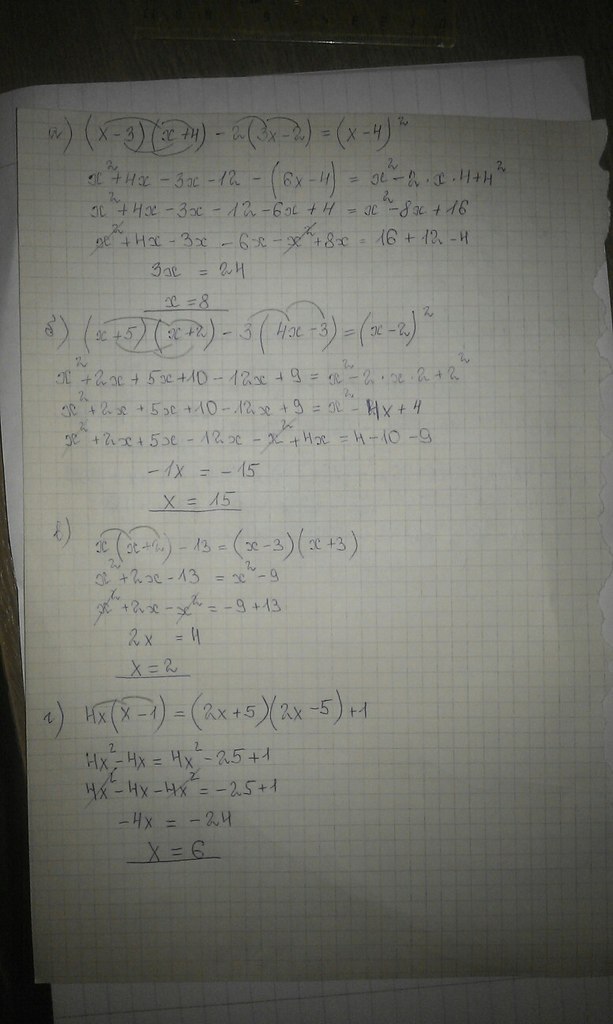 а) (x-3)(x+4) - 2(3x-2) = (x-4)²
x²+4x - 3x - 12 - (6x-4) = x²-2·x·4+4²
x²+4x-3x-12-6x+4 = x²-8x+16
x²+4x-3x - 6x-x²+8x = 16+12-4
3x = 24
x=8
б) (x+5)(x+2) - 3(4x-3) = (x-2)²
x²+2x+5x+10-12x+9 = x²-2·x·2+2²
x²+2x+5x+10-12x+9 = x²-4x+4
x²+2x+5x-12x-x²+4x = 4-10-9
-1x = -15
x = 15
в) x(x+2) - 13 = (x-3)(x+3)
x²+2x-13 = x²-9
x²+2x-x² = -9+13
2x = 4
x=2
г) 4x(x-1) = (2x+5)(2x-5)+1
4x²-4x = 4x²-25+1
4x²-4x-4x² = -25+1
-4x = -24
x = 6